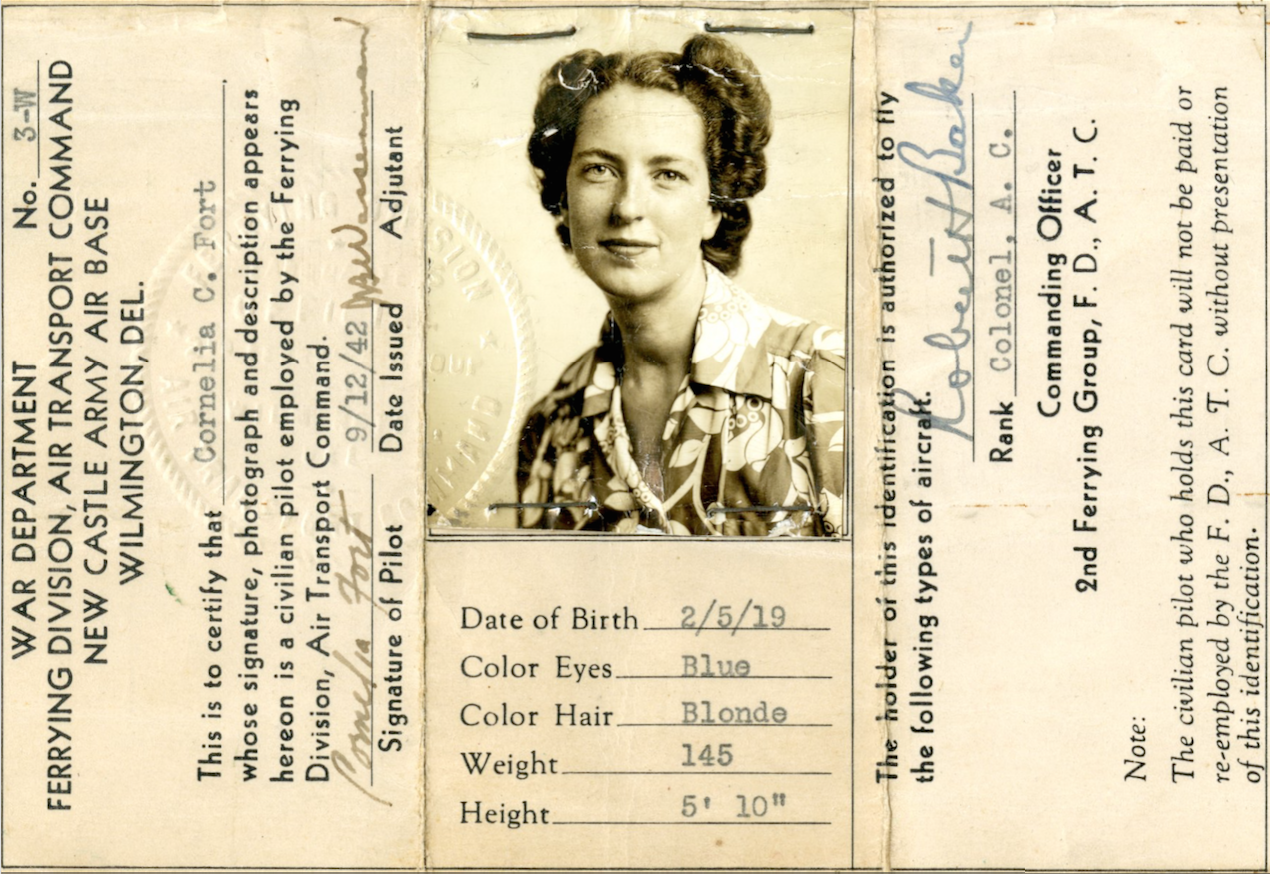 WAR DEPARTMENT No. 3-W
FERRYING DIVISION, AIR TRANSPORT COMMAND
NEW CASTLE ARMY AIR BASE
WILMINGTON, DEL.
This is to certify that Cornelia C. Fort
whose signature, photograph and description appears
hereon is a civilian pilot employed by the Ferrying
Division, Air Transport Command.
Cornelia Fort 9/12/42
Signature of Pilot Date Issued Adjutant
Date of Birth 2/5/19
Color Eyes Blue
Color Hair Blonde
Weight 145
Height 5' 10"
The holder of this identification is authorized to fly
the following types of aircraft.
Robert H Baker
Rank Colonel, A. C.
Commanding Officer
2nd Ferrying Group, F. D., A. T. C.
Note:
The civilian pilot who holds this card will not be paid or
re-employed by the F. D., A. T. C. without presentation
of this identification.